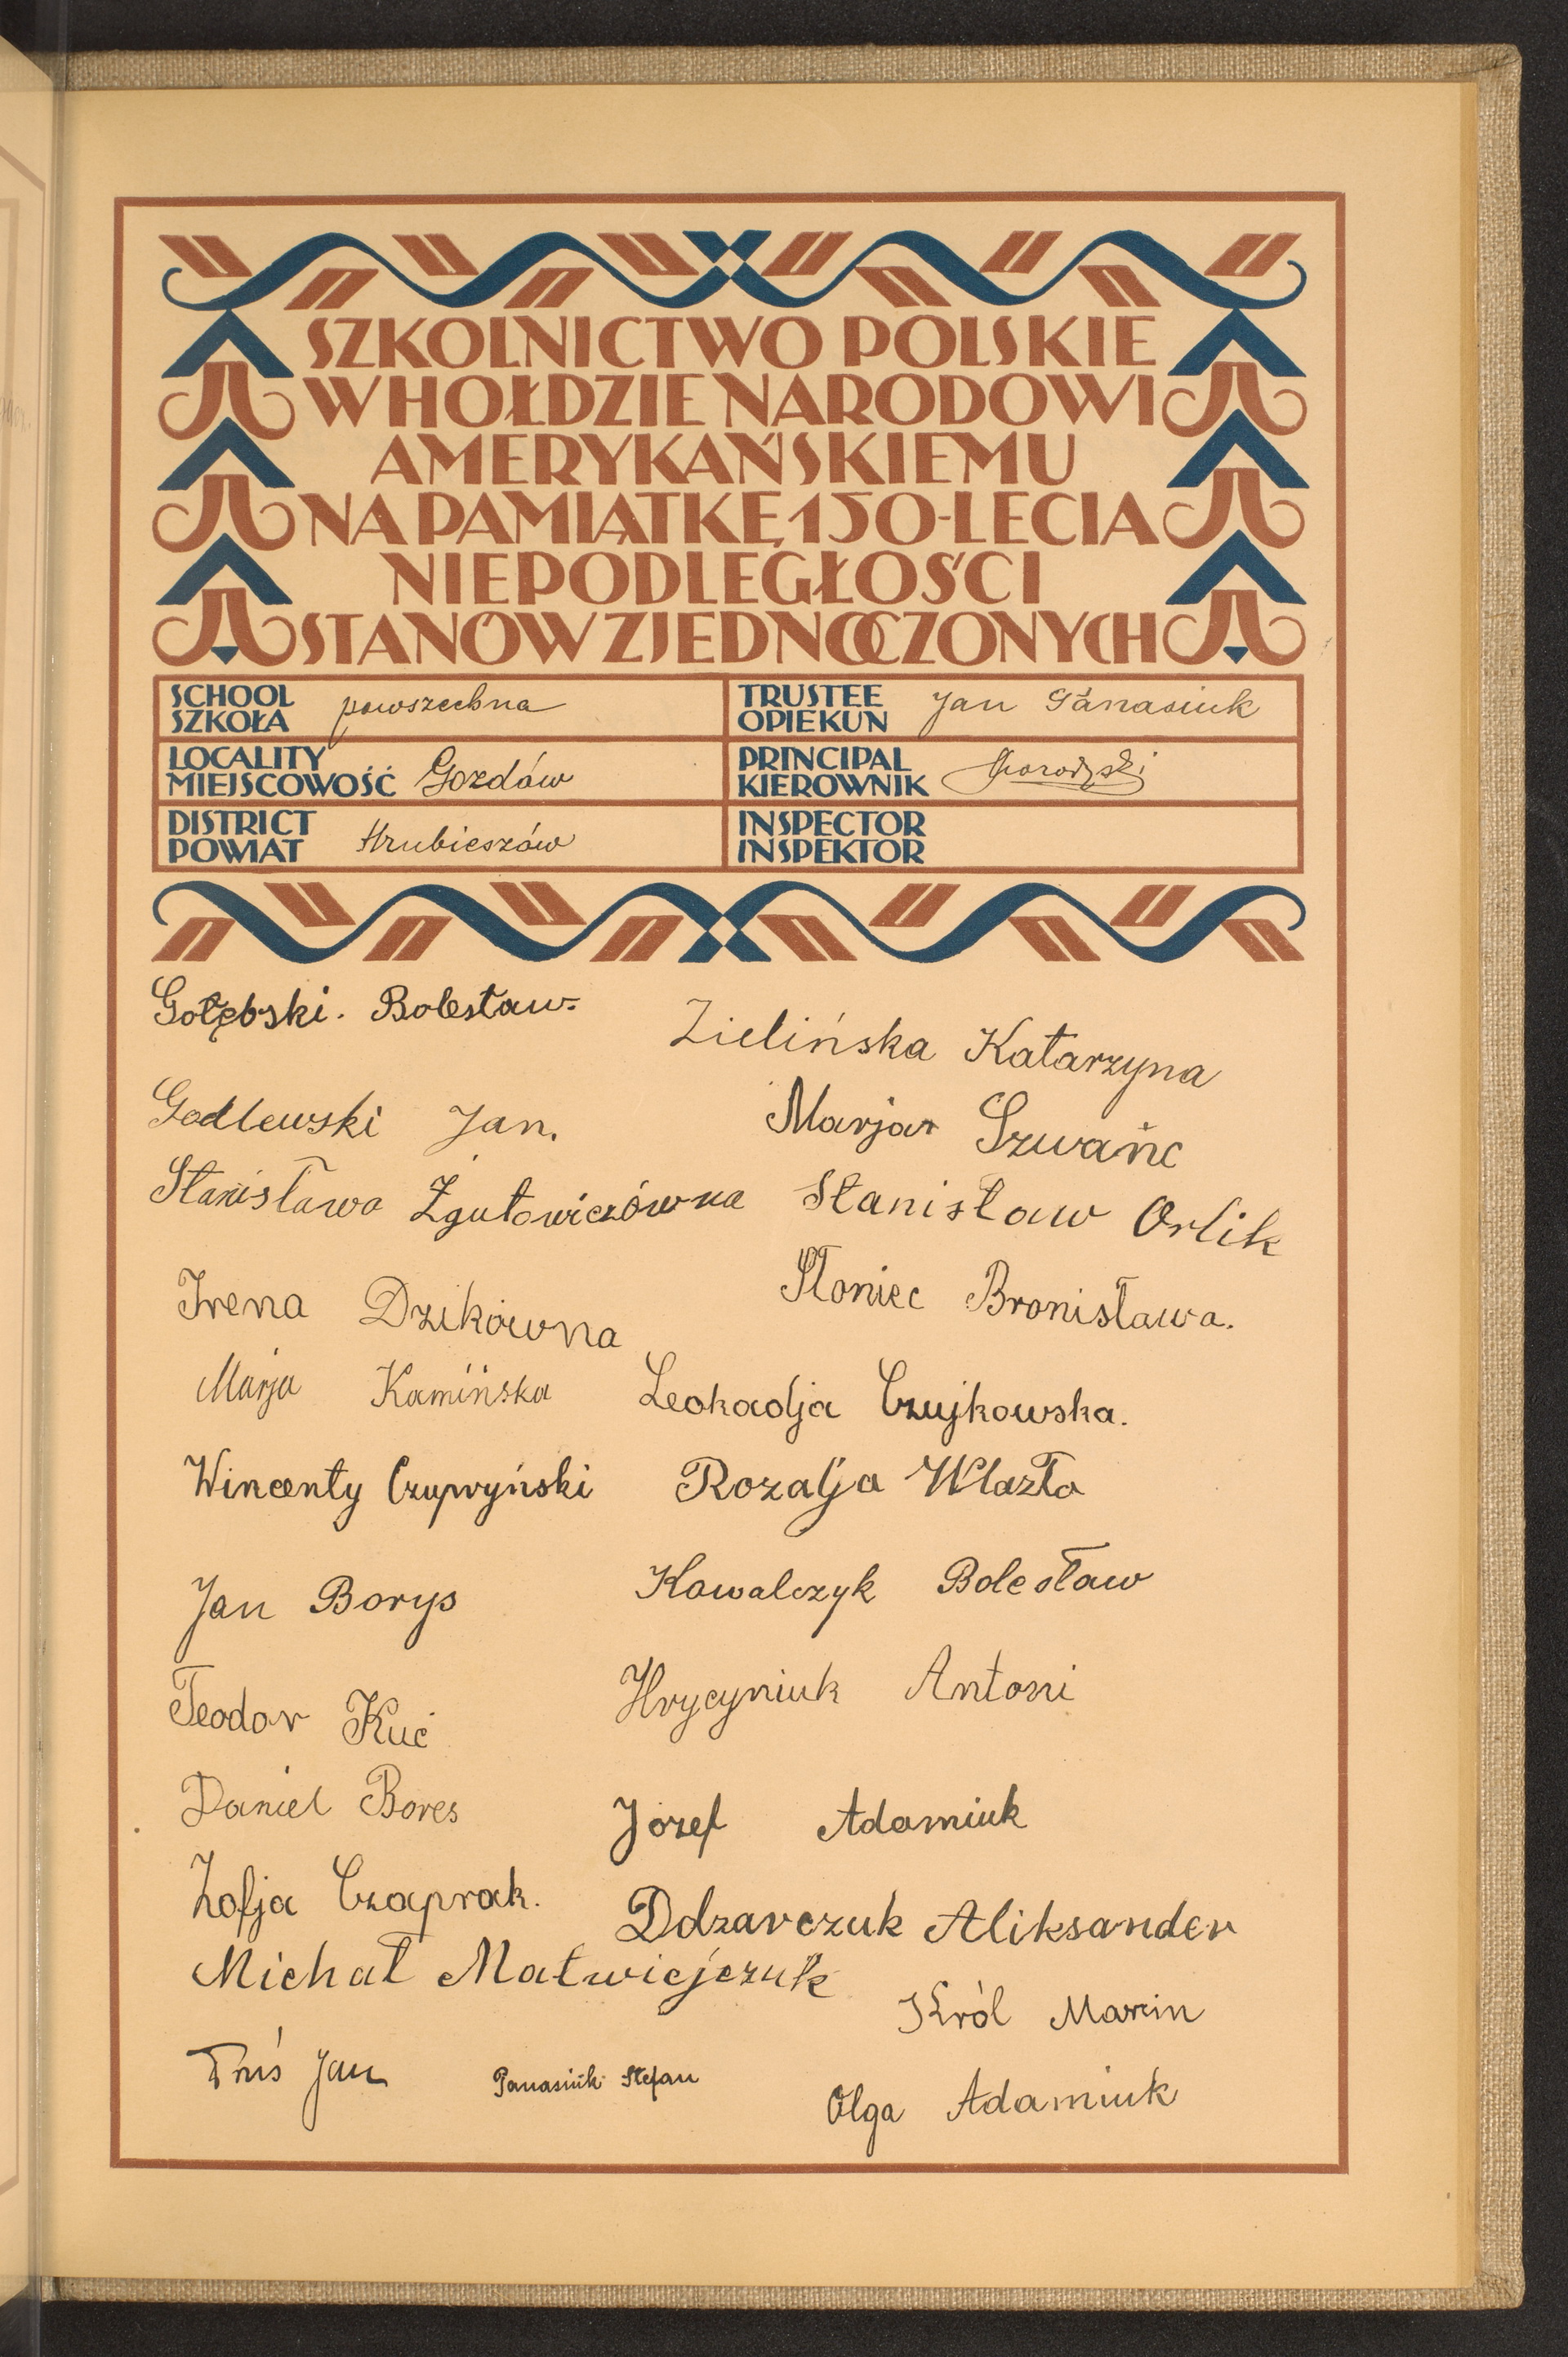 SZKOLNICTWO POLSKIE
W HOŁDZIE NARODOWI
AMERYKAŃSKIEMU
NA PAMIĄTKĘ 150-LECIA
NIEPODLEGŁOŚCI
STANÓW ZJEDNOCZONYCH
SCHOOL
SZKOŁA powszechna
TRUSTEE
OPIEKUN Jan Panasiuk
LOCALITY
MIEJSCOWOŚĆ Gozdów
PRINCIPAL
KIEROWNIK
DISTRICT
POWIAT Hrubieszów
INSPECTOR
INSPEKTOR
Gołębski. Bolesław
Zielińska Katarzyna
Godlewski Jan.
Marja Szwańc
Stanisława Żgutowiczówna
Stanisław Orlik
Irena Dzikówna
Słoniec Bronisława.
Marja Kamińska
Leokadja Czujkowska.
Wincenty Czupryński
Rozalja Wlazła
Jan Borys
Kowalczyk Bolesław
Teodor Kuć
Hrycyniuk Antoni
Daniel Bores
Józef Adamiuk
Zofja Czaprak.
Ddzarczuk Aliksander
Michał Matwiejczuk
Król Marcin
Jan
Panasiuk Stefan
Olga Adamiuk